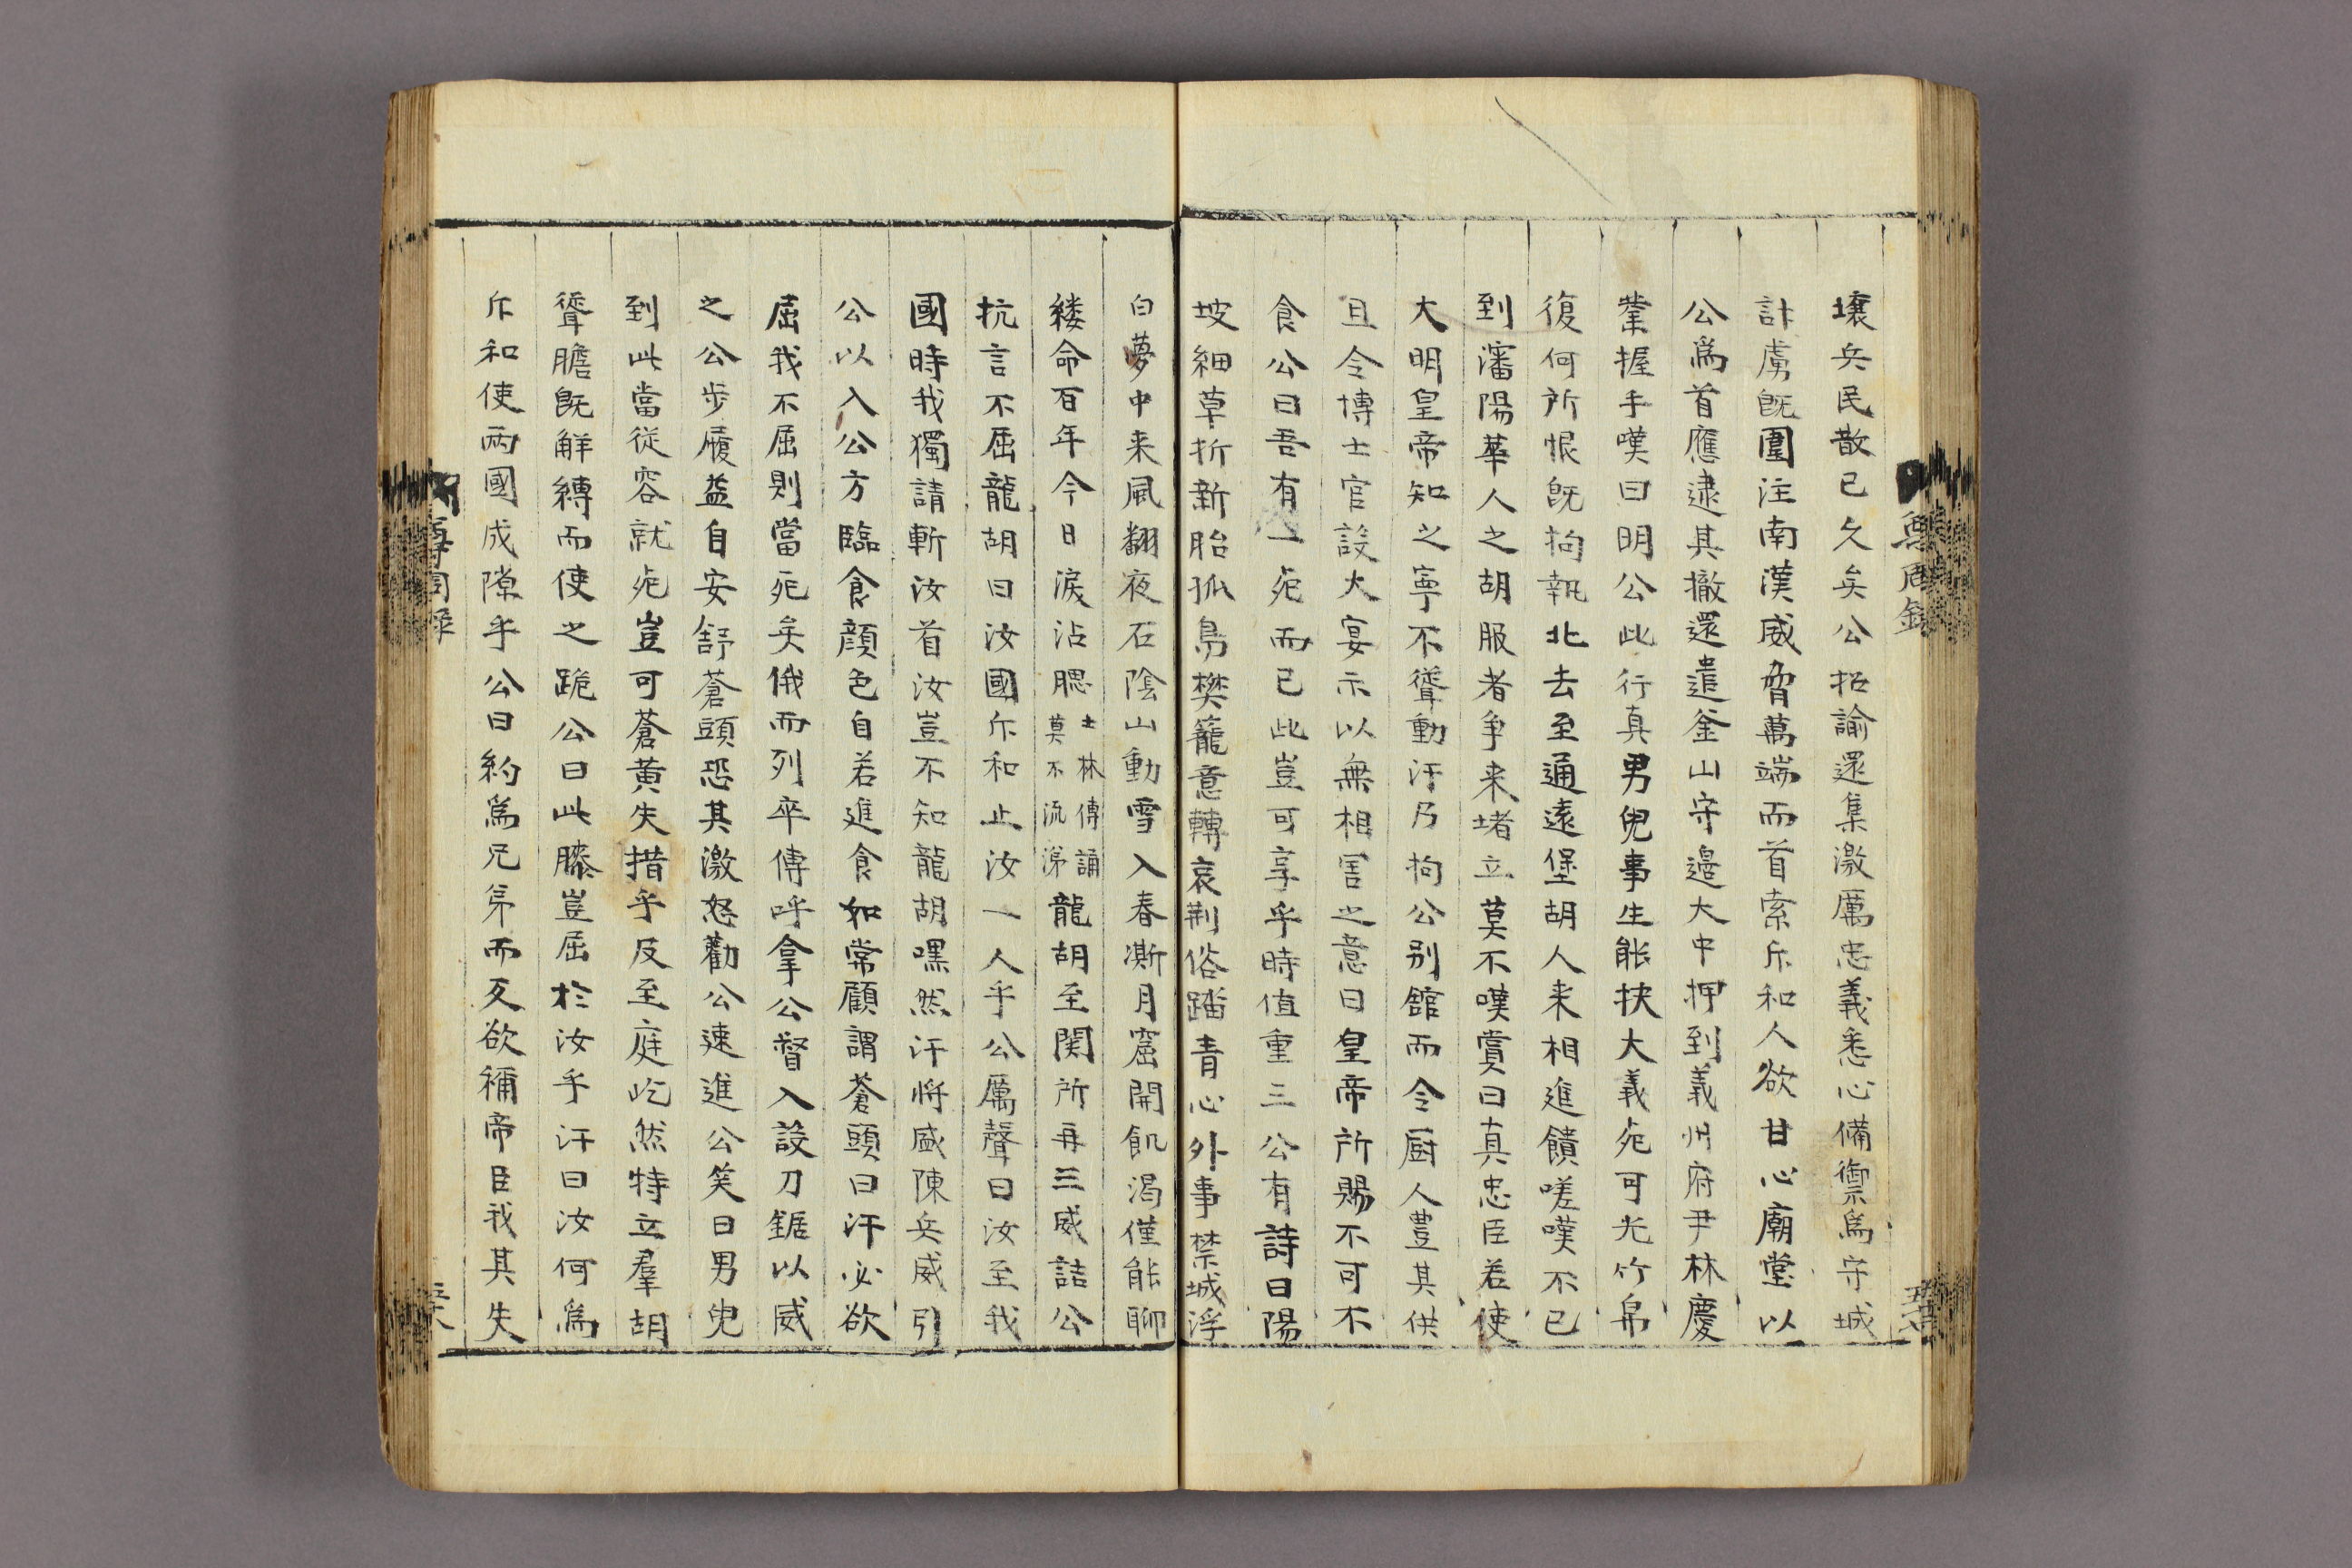 壤兵民散已久矣公招諭還集激厲忠義悉心備禦爲守城
計虜既圍注南漢威脅萬端而首索斥和人欲甘心廟堂以
公爲首應逮其撤還遣釜山守邊大中押到義州府尹林慶
業握手嘆曰明公此行真男兒事生能扶大義死可光竹帛
復何所恨既拘執北去至通遠堡胡人来相進饋嗟嘆不已
到瀋陽華人之胡服者爭来堵立莫不嘆賞曰真忠臣若使
大明皇帝知之寧不聳動汗乃拘公别舘而令厨人豊其供
且令博士官設大宴示以無相害之意曰皇帝所賜不可不
食公曰吾有一死而已此豈可享乎時值重三公有詩曰陽
坡細草折新胎孤鳥樊籠意轉哀荆俗踏青心外事禁城浮
白夢中来風翻夜石陰山動雪入春澌月窟開飢渴僅能聊
縷命百年今日淚沾腮士林傳誦莫不流涕龍胡至関所再三威詰公
抗言不屈龍胡曰汝國斥和止汝一人乎公厲聲曰汝至我
國時我獨請斬汝首汝豈不知龍胡嘿然汗將盛陳兵威引
公以入公方臨食顔色自若進食如常顧謂蒼頭曰汗必欲
屈我不屈則當死矣俄而列卒傳呼拿公督入設刀鋸以威
之公步履益自安舒蒼頭恐其激怒勸公速進公笑曰男兒
到此當從容就死豈可蒼黄失措乎及至庭屹然特立羣胡
聳膽既解縛而使之跪公曰此膝豈屈於汝乎汗曰汝何爲
斥和使兩國成隙乎公曰約爲兄弟而反欲稱帝臣我其失